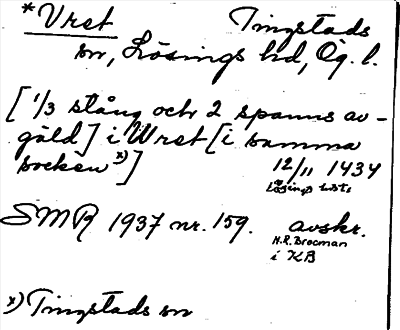 *Vret Tingstads
sn, Lösings hd, Ög. l.
[1/3 stång och 2 spanns av-
gäld] i Wret [i samma
socken x)] 12/11 1434
Lösings hst.
SMR 1937 nr. 159. avskr.
N.R. Brocman
i KB
x) Tingstads sn